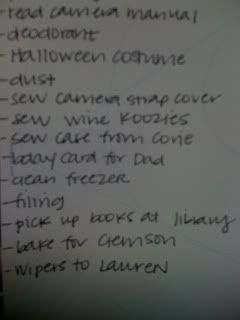 -read camera manual
-deodorant
-Halloween costume
-dust
-sew camera strap cover
-sew wine koozies
-sew case from Corie
-bday card for Dad
-clean freezer
-filing
-pick up books at library
-bake for Clemson
-wipers to Lauren